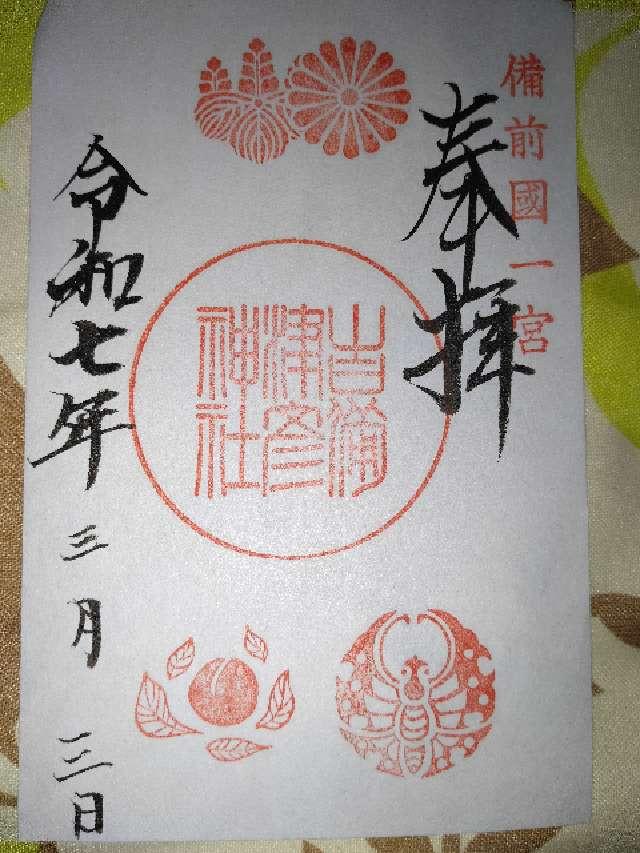 備前國一宮
奉拝
吉備
津彦
神社
令和七年三月三日